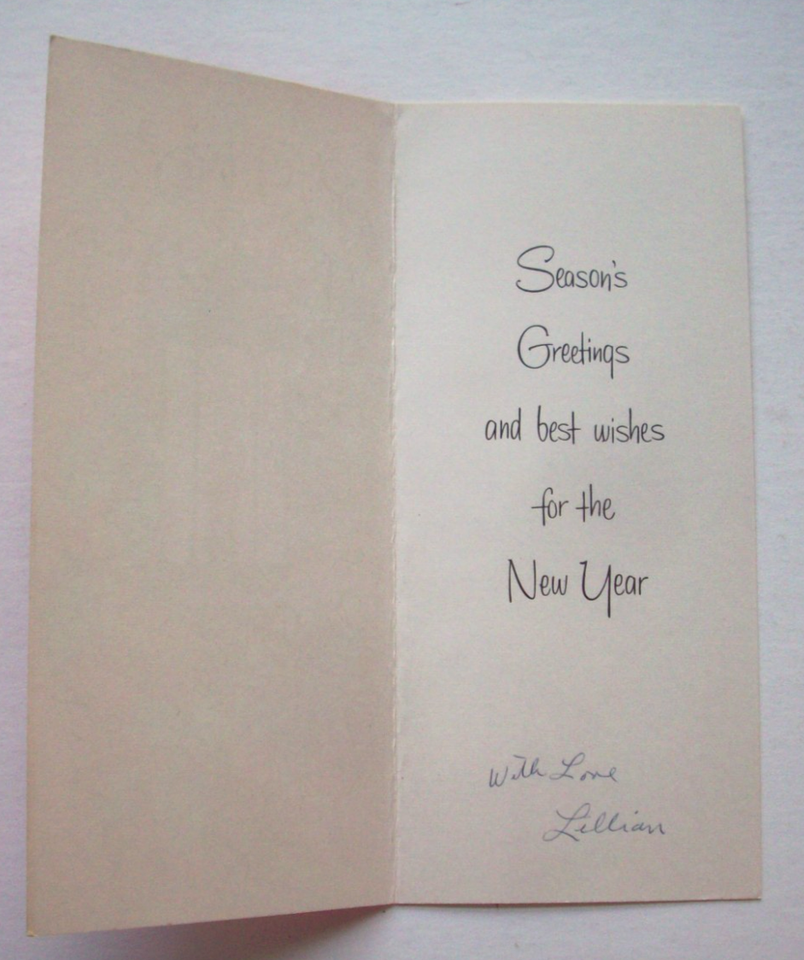 Season's
Greetings
and best wishes
for the
New Year
With Love
Lillian